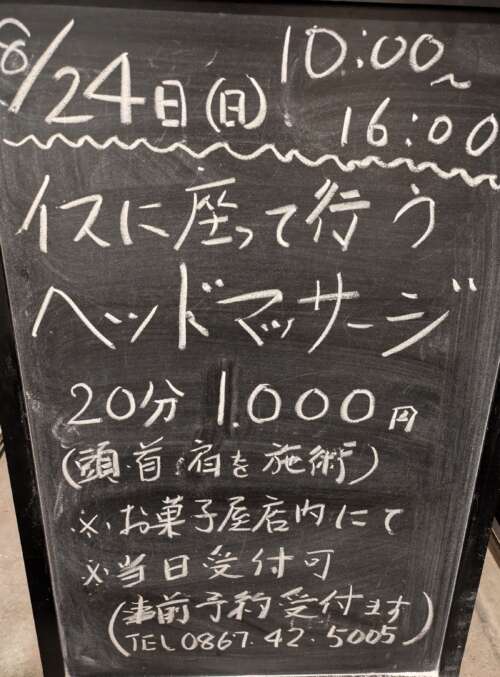 8/24日(日) 10:00~
16:00
イスに座って行う
ヘッドマッサージ
20分 1.000円
(頭・首・肩を施術)
※お菓子屋店内にて
※当日受付可
(事前予約受付ます)
(TEL0867.42.5005)